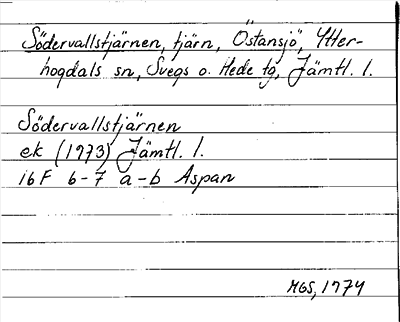 Södervallstjärnen, tjärn, Östansjö, Ytter-
hogdals sn, Svegs o. Hede tg, Jämtl. l.
Södervallstjärnen
ek (1973) Jämtl. l.
16F 6-7 a-b Aspan
MGS, 1974